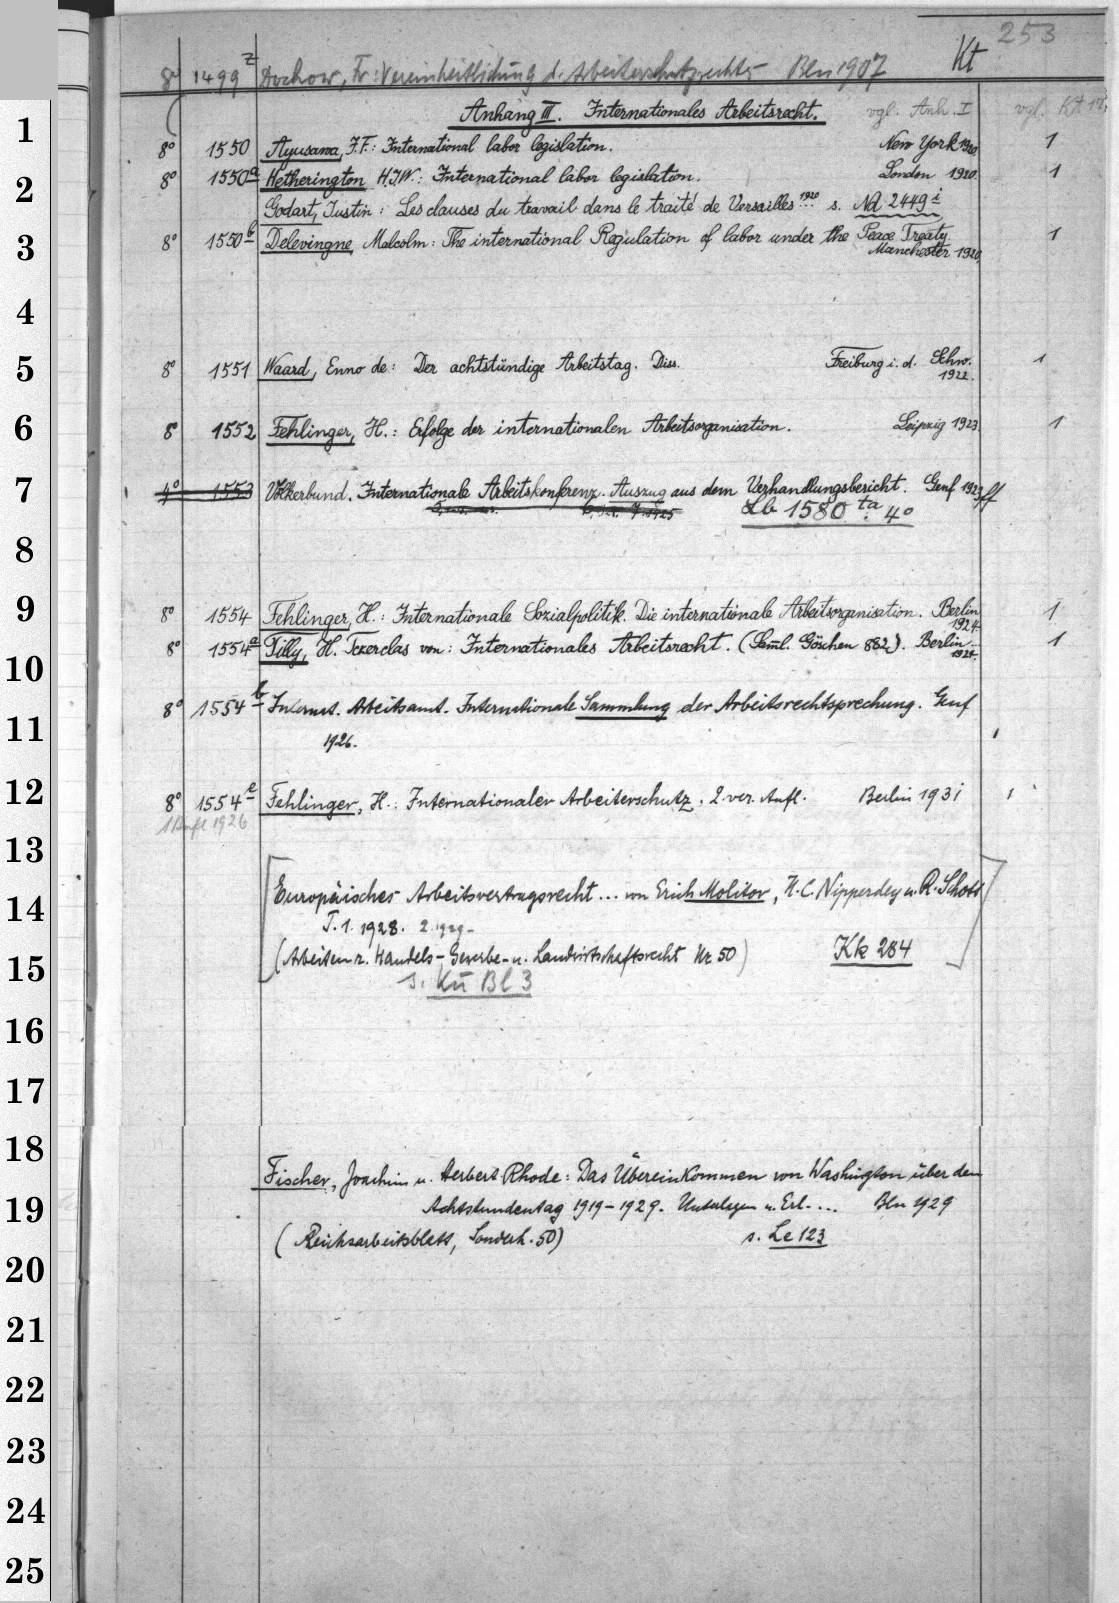 253
8° 1499 z Dochow, Fr: Vereinheitlichung d. Arbeiterschutzrechts Bln 1907 Kt
Anhang III. Internationales Arbeitsrecht. vgl. Anh. I vgl. Kt
1
8° 1550 Ayusawa, I.F.: International labor legislation. New York 1920 1
8° 1550a Hetherington H.J.W.: International labor legislation. London 1920. 1
2
Godart, Justin: Les clauses du travail dans le traité de Versailles 1920 s. Nd 2449 i
8° 1550b Delevingne Malcolm: The international Regulation of labor under the Peace Treaty 1
3
Manchester 1920
4
8° 1551 Waard, Enno de: Der achtstündige Arbeitstag. Diss. Freiburg i. d. Schw. 1
5
1922.
6
8° 1552 Fehlinger, H.: Erfolge der internationalen Arbeitsorganisation. Leipzig 1923 1
7
4° 1553 Völkerbund. Internationale Arbeitskonferenz. Auszug aus dem Verhandlungsbericht. Genf 1923 ff
Lb 1580 ta 4°
8
9
8° 1554 Fehlinger, H.: Internationale Sozialpolitik. Die internationale Arbeitsorganisation. Berlin 1924. 1
8° 1554a Tilly, H. Tczerclas von: Internationales Arbeitsrecht. (Samml. Göschen 882). Berlin 1924. 1
10
8° 1554b Internat. Arbeitsamt. Internationale Sammlung der Arbeitsrechtsprechung. Genf
11
1926.
12
8° 1554e Fehlinger, H.: Internationaler Arbeiterschutz. 2. ver. Aufl. Berlin 1931 1
1 Aufl 1926
13
Europäisches Arbeitsvertragsrecht ... von Erich Molitor, H.C. Nipperdey u. R. Schott
14
T. 1. 1928. 2. 1929-
(Arbeiten z. Handels- Gewerbe- u. Landwirtschaftsrecht Nr 50) Kk 284
15
s. Kü Bl 3
16
17
18
Fischer, Joachim u. Herbert Rhode: Das Übereinkommen von Washington über den
19
Achtstundentag 1919-1929. Unterlagen u. Erl. ... Bln 1929
(Reichsarbeitsblatt, Sonderh. 50) s. Le 123
20
21
22
23
24
25